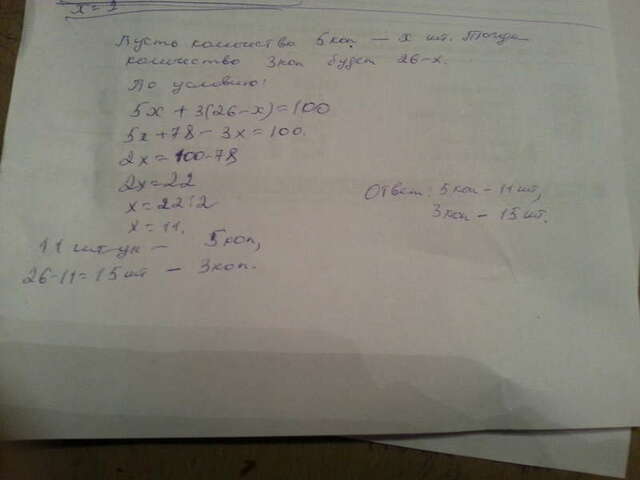 x = 2
Пусть количество 5коп – x шт. Тогда
количество 3коп будет 26-x.
По условию:
5x + 3(26-x)=100
5x+78-3x=100.
2x=100-78
2x=22
x=22:2
x=11.
11 штук – 5коп,
26-11=15шт – 3коп.
Ответ: 5коп – 11шт,
3коп – 15шт.